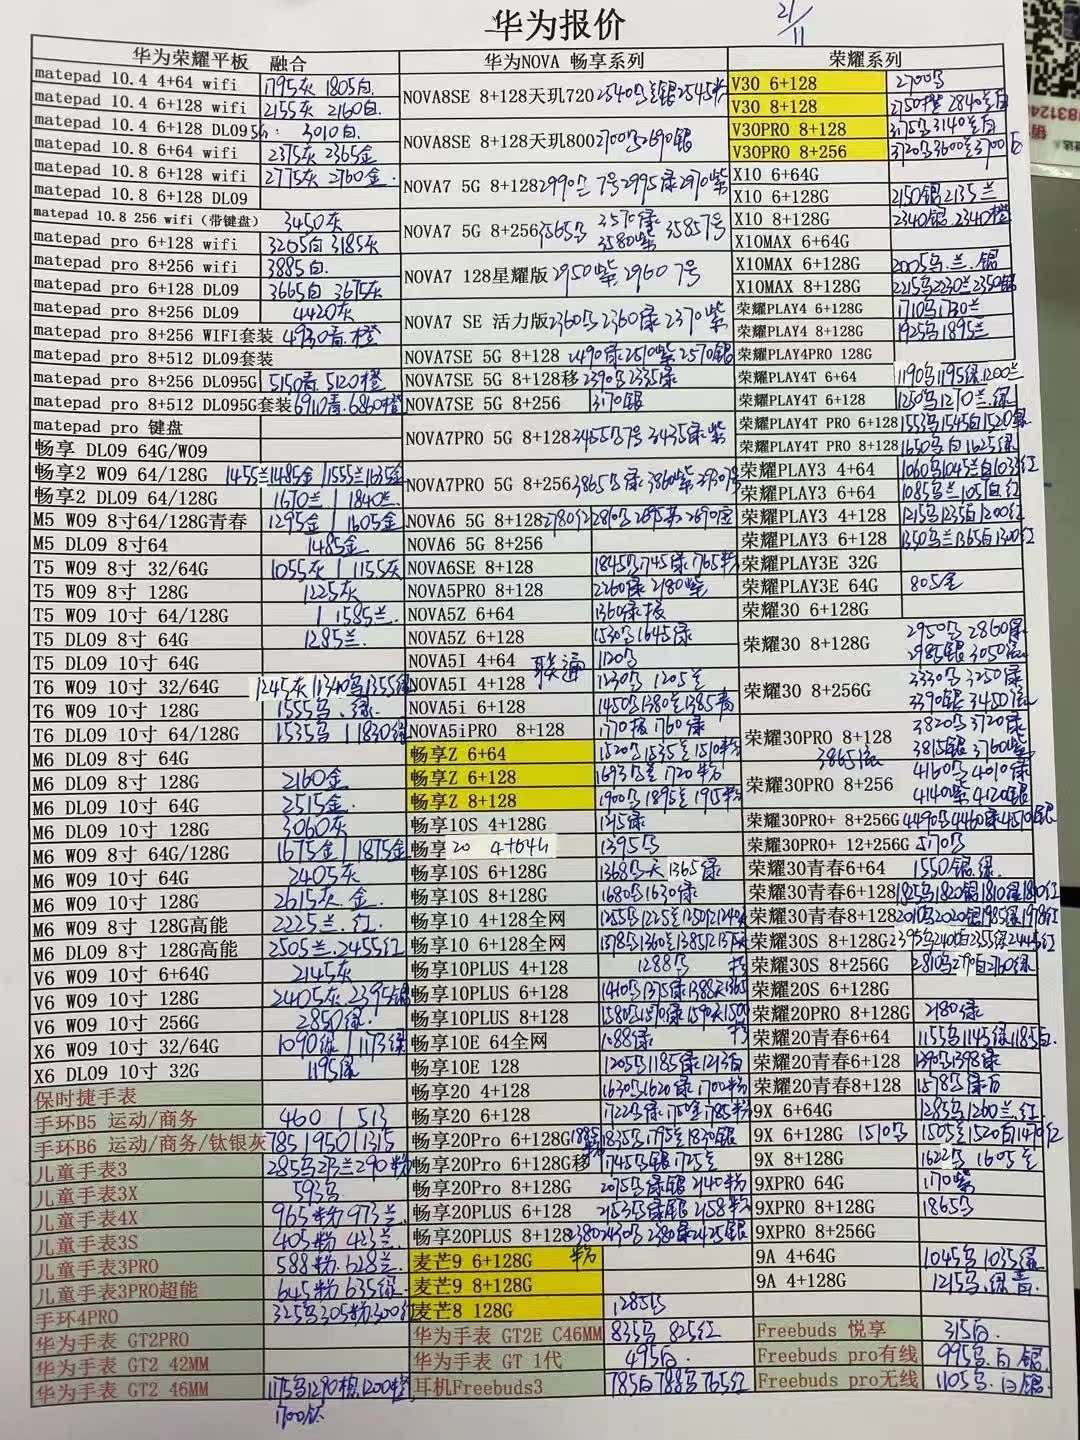 华为报价
21/11
华为荣耀平板 融合
华为NOVA 畅享系列
荣耀系列
matepad 10.4 4+64 wifi 1795灰 1805白
matepad 10.4 6+128 wifi 2155灰 2160白
matepad 10.4 6+128 DL09 5G: 3010白
matepad 10.8 6+64 wifi 2375灰 2365金
matepad 10.8 6+128 wifi 2775灰 2760金
matepad 10.8 6+128 DL09
matepad 10.8 256 wifi（带键盘） 3450灰
matepad pro 6+128 wifi 3205白 3185灰
matepad pro 8+256 wifi 3885白
matepad pro 6+128 DL09 3665白 3675灰
matepad pro 8+256 DL09 4420灰
matepad pro 8+256 WIFI套装 4930青.橙
matepad pro 8+512 DL09套装
matepad pro 8+256 DL095G 5150青 5120橙
matepad pro 8+512 DL095G套装 6910青.6860橙
matepad pro 键盘
畅享 DL09 64G/W09
畅享2 W09 64/128G 1455兰1485金 / 1555兰1635金
畅享2 DL09 64/128G 1670兰 / 1840兰
M5 W09 8寸64/128G青春 1295金 / 1605金
M5 DL09 8寸64 1485金
T5 W09 8寸 32/64G 1055灰 / 1155灰
T5 W09 8寸 128G 1225灰
T5 W09 10寸 64/128G / 1585兰
T5 DL09 8寸 64G 1285兰
T5 DL09 10寸 64G
T6 W09 10寸 32/64G 1245灰 / 1340乌1355绿
T6 W09 10寸 128G 1555乌.绿
T6 DL09 10寸 64/128G 1535乌 / 1830绿
M6 DL09 8寸 64G
M6 DL09 8寸 128G 2160金
M6 DL09 10寸 64G 2515金
M6 DL09 10寸 128G 3060灰
M6 W09 8寸 64G/128G 1675金 / 1875金
M6 W09 10寸 64G 2405灰
M6 W09 10寸 128G 2615灰.金
M6 W09 8寸 128G高能 2225兰.红
M6 DL09 8寸 128G高能 2505兰.2455红
V6 W09 10寸 6+64G 2145灰
V6 W09 10寸 128G 2405灰 2395银
V6 W09 10寸 256G 2850绿
X6 W09 10寸 32/64G 1090绿 / 1173绿
X6 DL09 10寸 32G 1195绿
保时捷手表
手环B5 运动/商务 460 / 513
手环B6 运动/商务/钛银灰 785 / 950 / 1315
儿童手表3
儿童手表3X 593乌
儿童手表4X 965粉 973兰
儿童手表3S 405粉 423兰
儿童手表3PRO 588粉 628兰
儿童手表3PRO超能 645粉 635绿
手环4PRO 325乌305粉300红
华为手表 GT2PRO
华为手表 GT2 42MM
华为手表 GT2 46MM 1175乌1290棕1200橙
1700钛
NOVA8SE 8+128天玑720 2540乌兰银2545粉
NOVA8SE 8+128天玑800 2700乌2690银
NOVA7 5G 8+128 2990兰 7号2995绿2970紫
NOVA7 5G 8+256 3565乌 3570绿 3580紫 3585 7号
NOVA7 128星耀版 2950紫 2960 7号
NOVA7 SE 活力版 2360乌2360绿2370紫
NOVA7SE 5G 8+128 2490绿2510紫2570银
NOVA7SE 5G 8+128移 2390乌2335绿
NOVA7SE 5G 8+256 3170银
NOVA7PRO 5G 8+128 3455乌7号3435绿紫
NOVA7PRO 5G 8+256 3865乌绿3860紫
NOVA6 5G 8+128 2780红
NOVA6 5G 8+256
NOVA6SE 8+128 1845乌1745绿1765粉
NOVA5PRO 8+128 2260绿2180紫
NOVA5Z 6+64
NOVA5Z 6+128 1530乌1645绿
NOVA5I 4+64 联通 1120乌
NOVA5I 4+128 1230乌 1205兰
NOVA5i 6+128 1450乌1380兰1385青
NOVA5iPRO 8+128 1760绿
畅享Z 6+64 1520乌1535兰1510粉
畅享Z 6+128 1693乌兰1720粉
畅享Z 8+128 1900乌1895兰1915粉
畅享10S 4+128G 1215绿
畅享20 4+64G 1395乌
畅享10S 6+128G 1368乌天1365绿
畅享10S 8+128G 1680乌1630绿
畅享10 4+128全网
畅享10 6+128全网
畅享10PLUS 4+128 1288乌
畅享10PLUS 6+128
畅享10PLUS 8+128
畅享10E 64全网 1088绿
畅享10E 128 1205乌1185绿1213白
畅享20 4+128 1630乌1620绿1700粉
畅享20 6+128 1722乌绿1750金1785粉
畅享20Pro 6+128G 1885粉 1835乌1795兰1830银
畅享20Pro 6+128G移 1745乌银1725兰
畅享20Pro 8+128G 2075乌绿银2140粉
畅享20PLUS 6+128 2153乌绿银2158粉
畅享20PLUS 8+128 2380粉 2430乌2380绿2425银
麦芒9 6+128G
麦芒9 8+128G
麦芒8 128G 1285乌
华为手表 GT2E C46MM 835乌 825红
华为手表 GT 1代 495白
耳机Freebuds3 785白788乌765红
V30 6+128 2700乌
V30 8+128 2750橙 2840兰白
V30PRO 8+128 3175乌3140兰白
V30PRO 8+256 3720乌3600兰3700白
X10 6+64G
X10 6+128G 2150银2135兰
X10 8+128G 2340银.2340橙
X10MAX 6+64G
X10MAX 6+128G 2005乌.兰.银
X10MAX 8+128G 2215乌2230兰2350银
荣耀PLAY4 6+128G 1710乌1730兰
荣耀PLAY4 8+128G 1925乌1895兰
荣耀PLAY4PRO 128G
荣耀PLAY4T 6+64 1190乌1195绿1200兰
荣耀PLAY4T 6+128 1250乌1270兰.绿
荣耀PLAY4T PRO 6+128 1553乌1545白1520绿
荣耀PLAY4T PRO 8+128 1650乌白1625绿
荣耀PLAY3 4+64 1060乌1045兰白1033红
荣耀PLAY3 6+64 1085乌兰1051白红
荣耀PLAY3 4+128 1215乌1235白1200红
荣耀PLAY3 6+128 1350乌兰1365白1300红
荣耀PLAY3E 32G
荣耀PLAY3E 64G 805金
荣耀30 6+128G
荣耀30 8+128G 2950乌2860绿
2985银3050
荣耀30 8+256G 3330乌3250绿
3390银3450
荣耀30PRO 8+128 3820乌3720绿
3815银3760紫
3865
荣耀30PRO 8+256 4160乌4010绿
4140紫4120银
荣耀30PRO+ 8+256G 4490乌4460绿4570银
荣耀30PRO+ 12+256G 5170乌
荣耀30青春6+64 1550银.绿
荣耀30青春6+128 1825乌1820银1810绿1840红
荣耀30青春8+128 2010乌2020银1985绿1978红
荣耀30S 8+128G 2395乌2405白2355绿2445红
荣耀30S 8+256G
荣耀20S 6+128G
荣耀20PRO 8+128G 2180绿
荣耀20青春6+64 1155乌1145绿1185白
荣耀20青春6+128 1390乌1398绿
荣耀20青春8+128 1578乌绿白
9X 6+64G 1283乌1260兰.红
9X 6+128G 1510乌 1505兰1520白1470红
9X 8+128G 1622乌 1605兰
9XPRO 64G 1170紫
9XPRO 8+128G 1865乌
9XPRO 8+256G
9A 4+64G 1045乌 1035绿
9A 4+128G 1215乌.绿青
Freebuds 悦享 315白
Freebuds pro有线 995乌.白 银
Freebuds pro无线 1105乌.白银